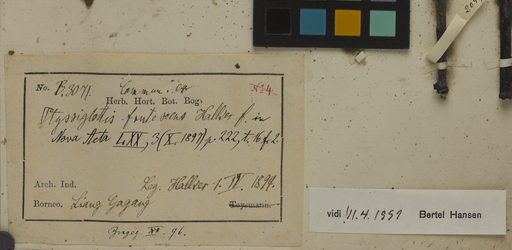 No. B.3071. Commun. ex
No 4.
Herb. Hort. Bot. Bog.
Ptyssiglottis frutescens Hallier f. in
Nova Acta LXX, 3 (X. 1897) p. 222, t. 16 f. 2
Arch. Ind. Leg. Hallier 1. IV. 1894.
Borneo. Liang Gagang Teysmann.
96.
vidi 11.4.1959 Bertel Hansen